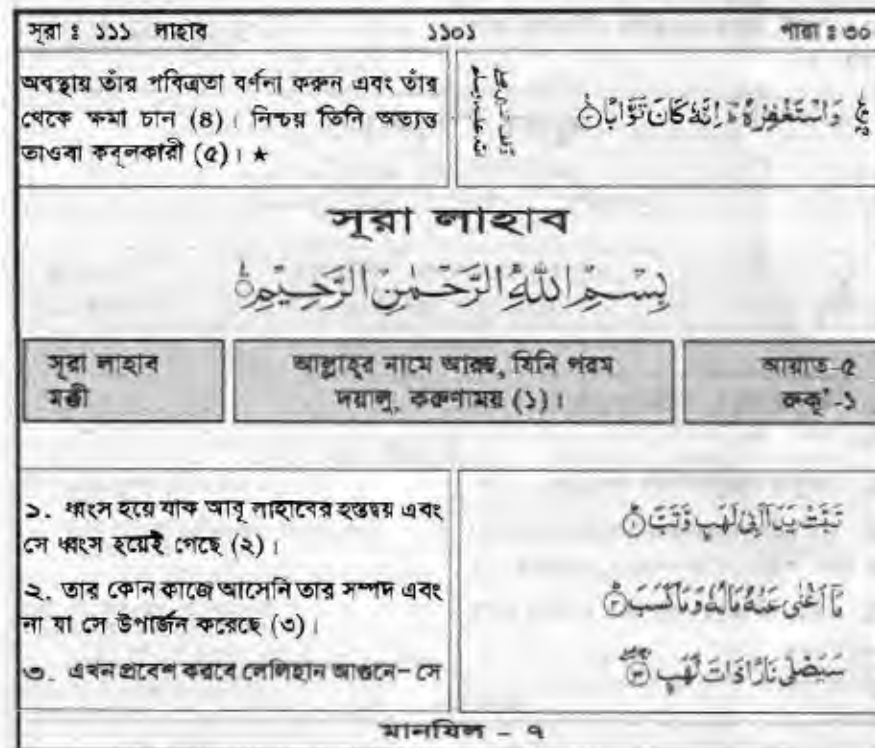 সূরা ঃ ১১১ লাহাব ১১০১ পারা ঃ ৩০
অবস্থায় তাঁর পবিত্রতা বর্ণনা করুন এবং তাঁর
থেকে ক্ষমা চান (৪)। নিশ্চয় তিনি অত্যন্ত
তাওবা কবূলকারী (৫)। ★
وَاسْتَغْفِرْهُ ؕ اِنَّهٗ كَانَ تَوَّابًا
সূরা লাহাব
بِسْمِ اللّٰهِ الرَّحْمٰنِ الرَّحِيْمِ
সূরা লাহাব
মক্কী
আল্লাহ্‌র নামে আরম্ভ, যিনি পরম
দয়ালু, করুণাময় (১)।
আয়াত-৫
রুকূ'-১
১. ধ্বংস হয়ে যাক আবূ লাহাবের হস্তদ্বয় এবং
সে ধ্বংস হয়েই গেছে (২)।
২. তার কোন কাজে আসেনি তার সম্পদ এবং
না যা সে উপার্জন করেছে (৩)।
৩. এখন প্রবেশ করবে লেলিহান আগুনে- সে
تَبَّتْ يَدَاۤ اَبِيْ لَهَبٍ وَّتَبَّ ۝۱
مَاۤ اَغْنٰى عَنْهُ مَالُهٗ وَمَا كَسَبَ ۝۲
سَيَصْلٰى نَارًا ذَاتَ لَهَبٍ ۝۳
মানযিল - ৭